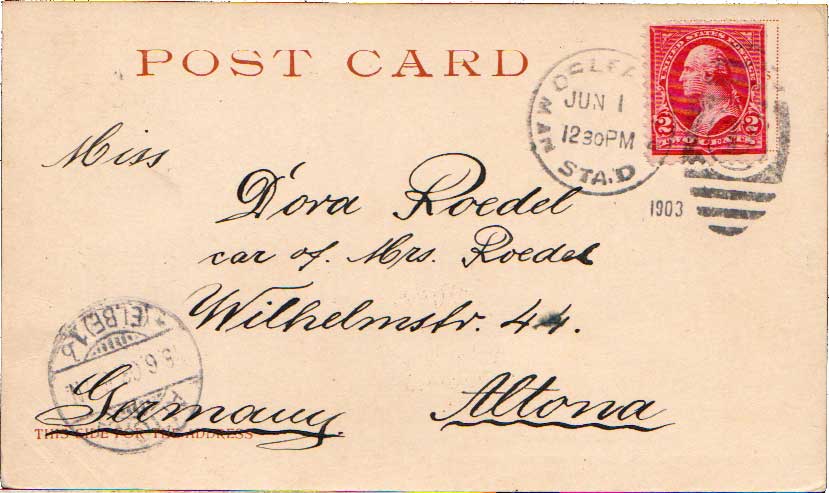 POST CARD
JUN 1
1230PM
STA.D
1903
UNITED STATES POSTAGE
2 2
TWO CENTS
Miss
Dora Roedel
car of. Mrs. Roedel
Wilhelmstr. 44.
Germany. Altona
(ELBE) 1 b
THIS SIDE FOR THE ADDRESS